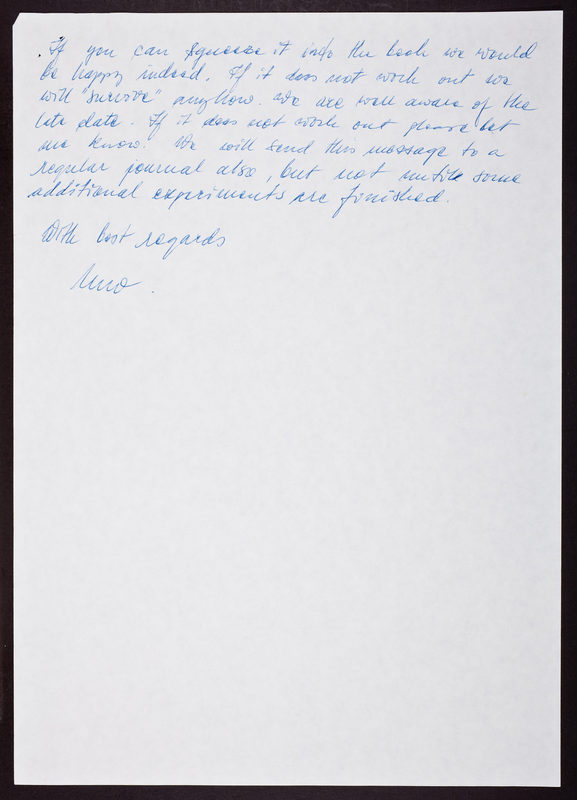 If you can squeeze it into the book we would
be happy indeed. If it does not work out we
will "survive" anyhow. We are well aware of the
late date. If it does not work out please let
me know. We will send this message to a
regular journal also, but not untill some
additional experiments are finished.
With best regards